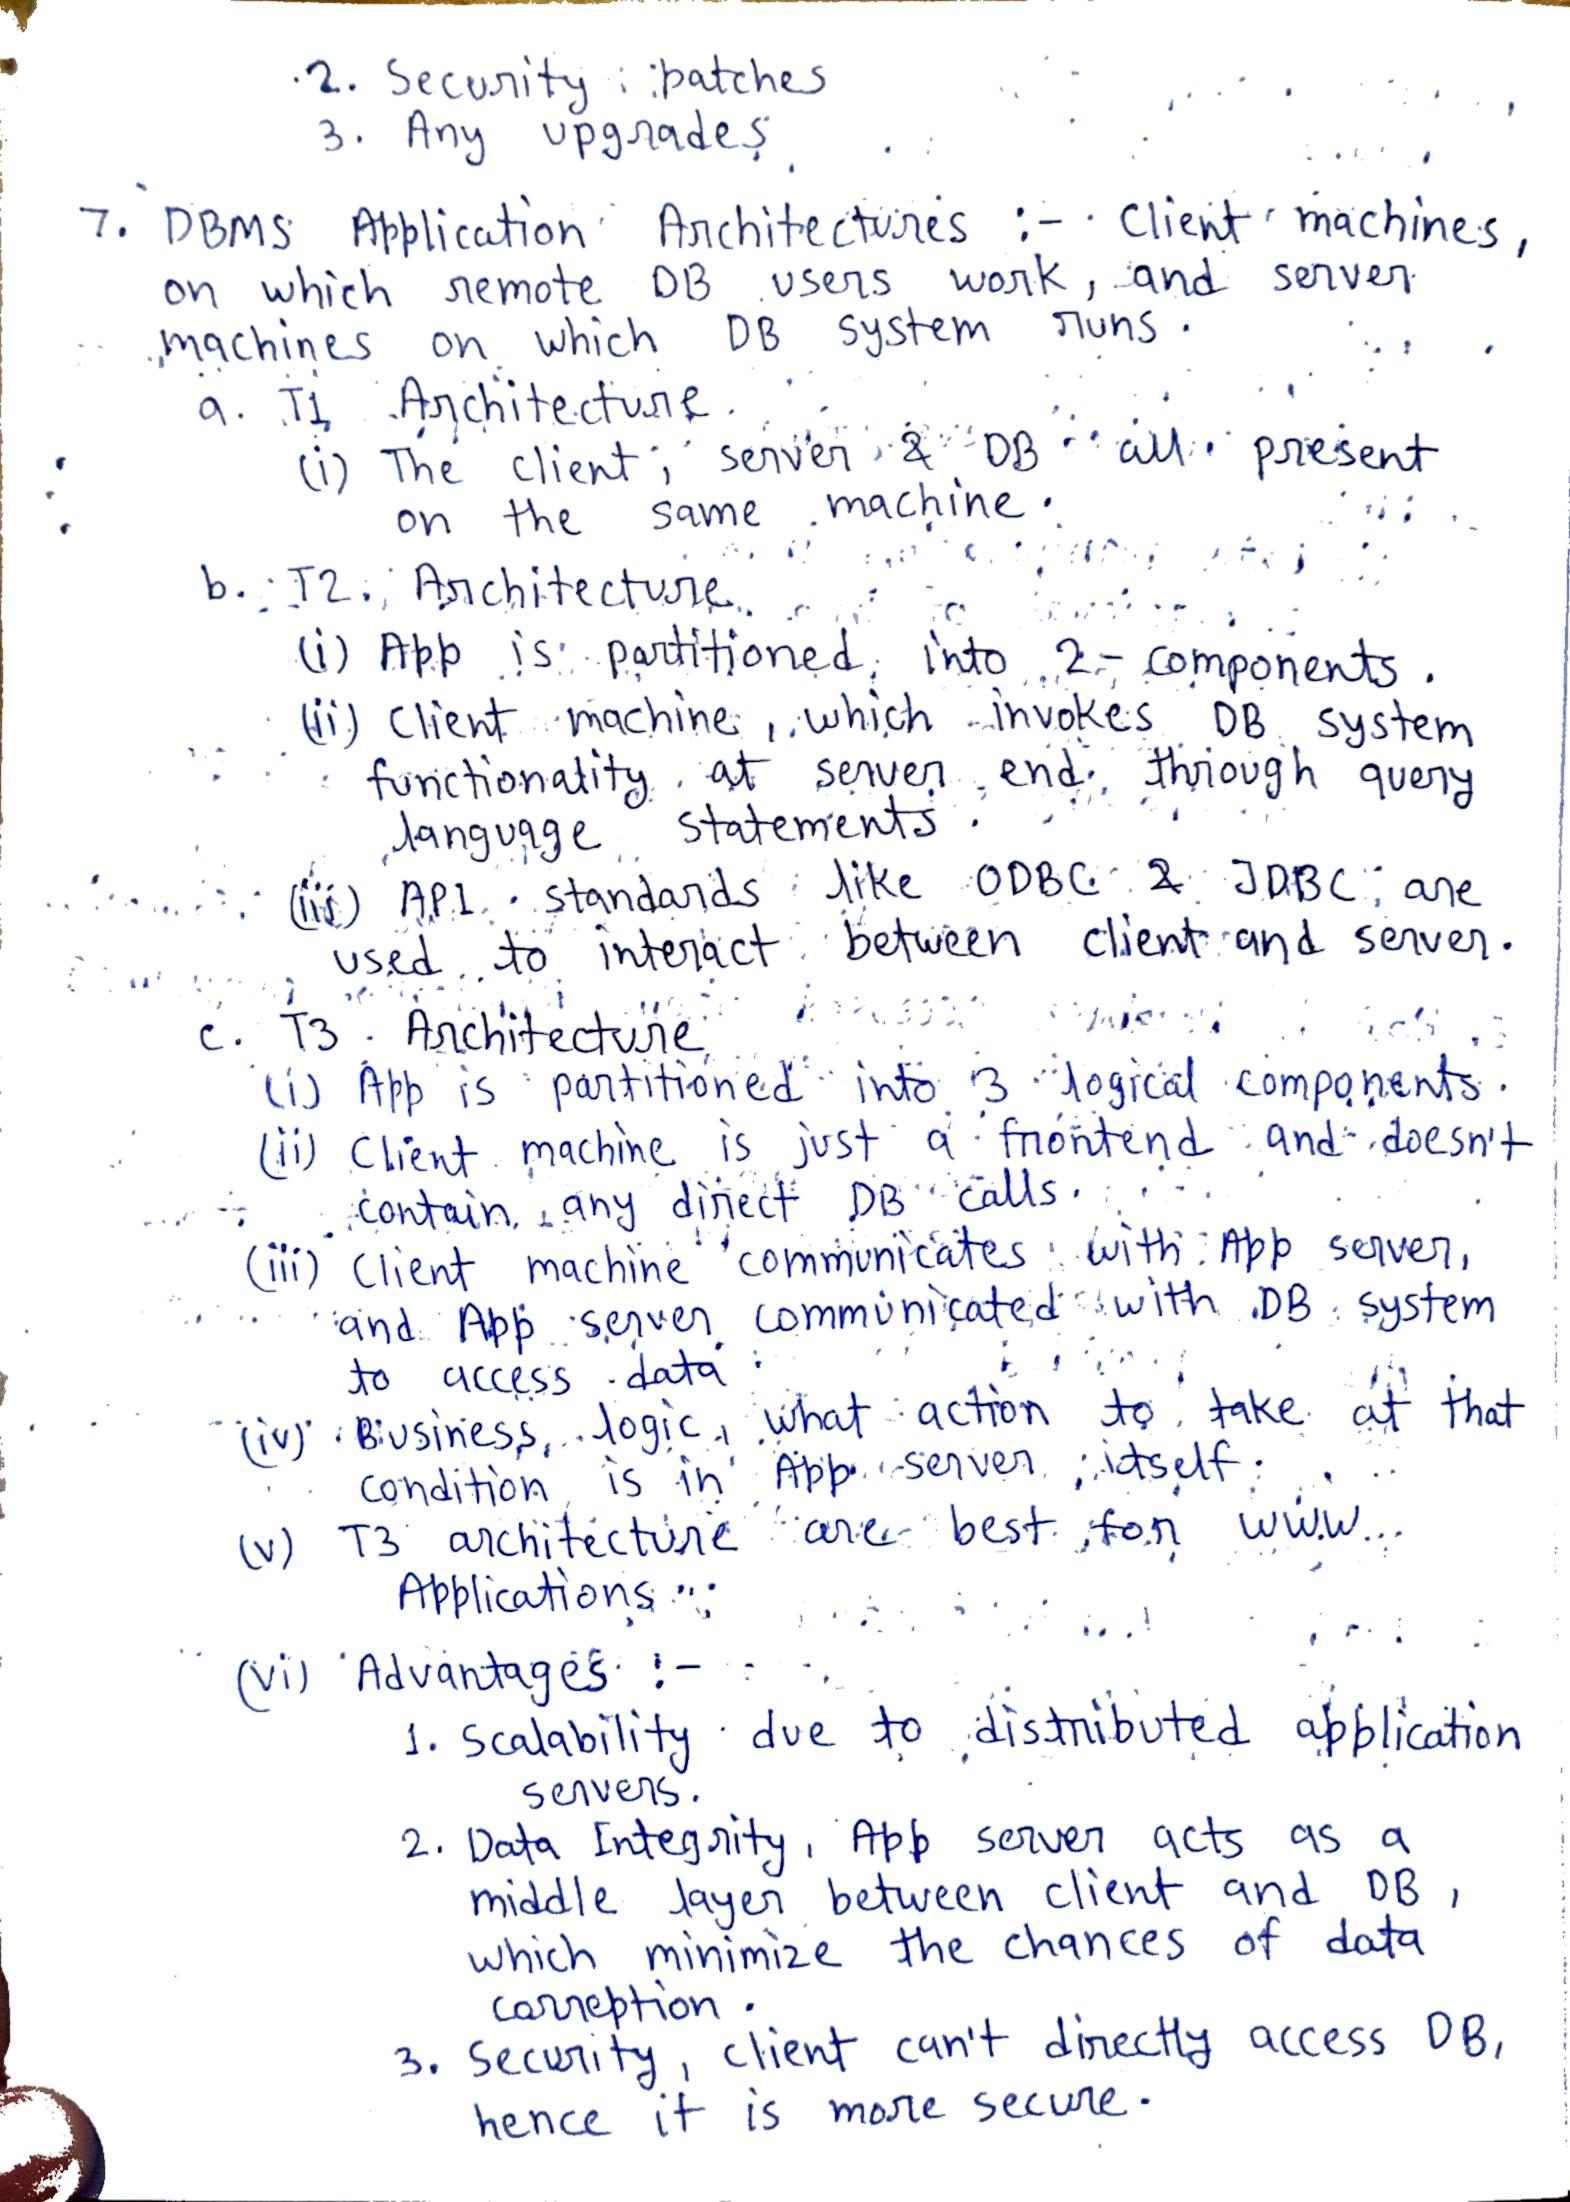 2. Security patches
3. Any upgrades
7. DBMS Application Architectures :- Client machines,
on which remote DB users work, and server
machines on which DB system runs.
a. T1 Architecture.
(i) The client, server & DB all present
on the same machine.
b. T2 Architecture
(i) App is partitioned into 2-components.
(ii) Client machine, which invokes DB system
functionality at server end through query
language statements.
(iii) API standards like ODBC & JDBC are
used to interact between client and server.
c. T3 Architecture
(i) App is partitioned into 3 logical components.
(ii) Client machine is just a frontend and doesn't
contain any direct DB calls.
(iii) Client machine communicates with App server,
and App server communicated with DB system
to access data.
(iv) Business logic, what action to take at that
condition is in App server itself.
(v) T3 architecture are best for www
Applications.
(vi) Advantages :-
1. Scalability due to distributed application
servers.
2. Data Integrity, App server acts as a
middle layer between client and DB,
which minimize the chances of data
correption.
3. Security, client can't directly access DB,
hence it is more secure.